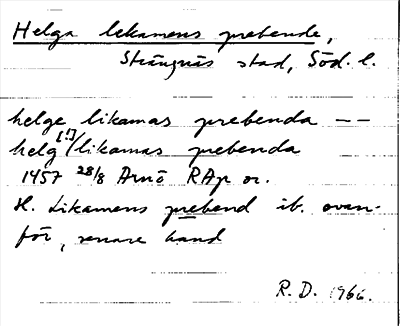 Helga lekamens prebende,
Strängnäs stad, Söd. l.
helge likamas prebenda --
helg [!]/likamas prebenda
1457 28/8 Arnö RAp or.
H. Likamens prebend ib. ovan-
för, senare hand
R. D. 1966.